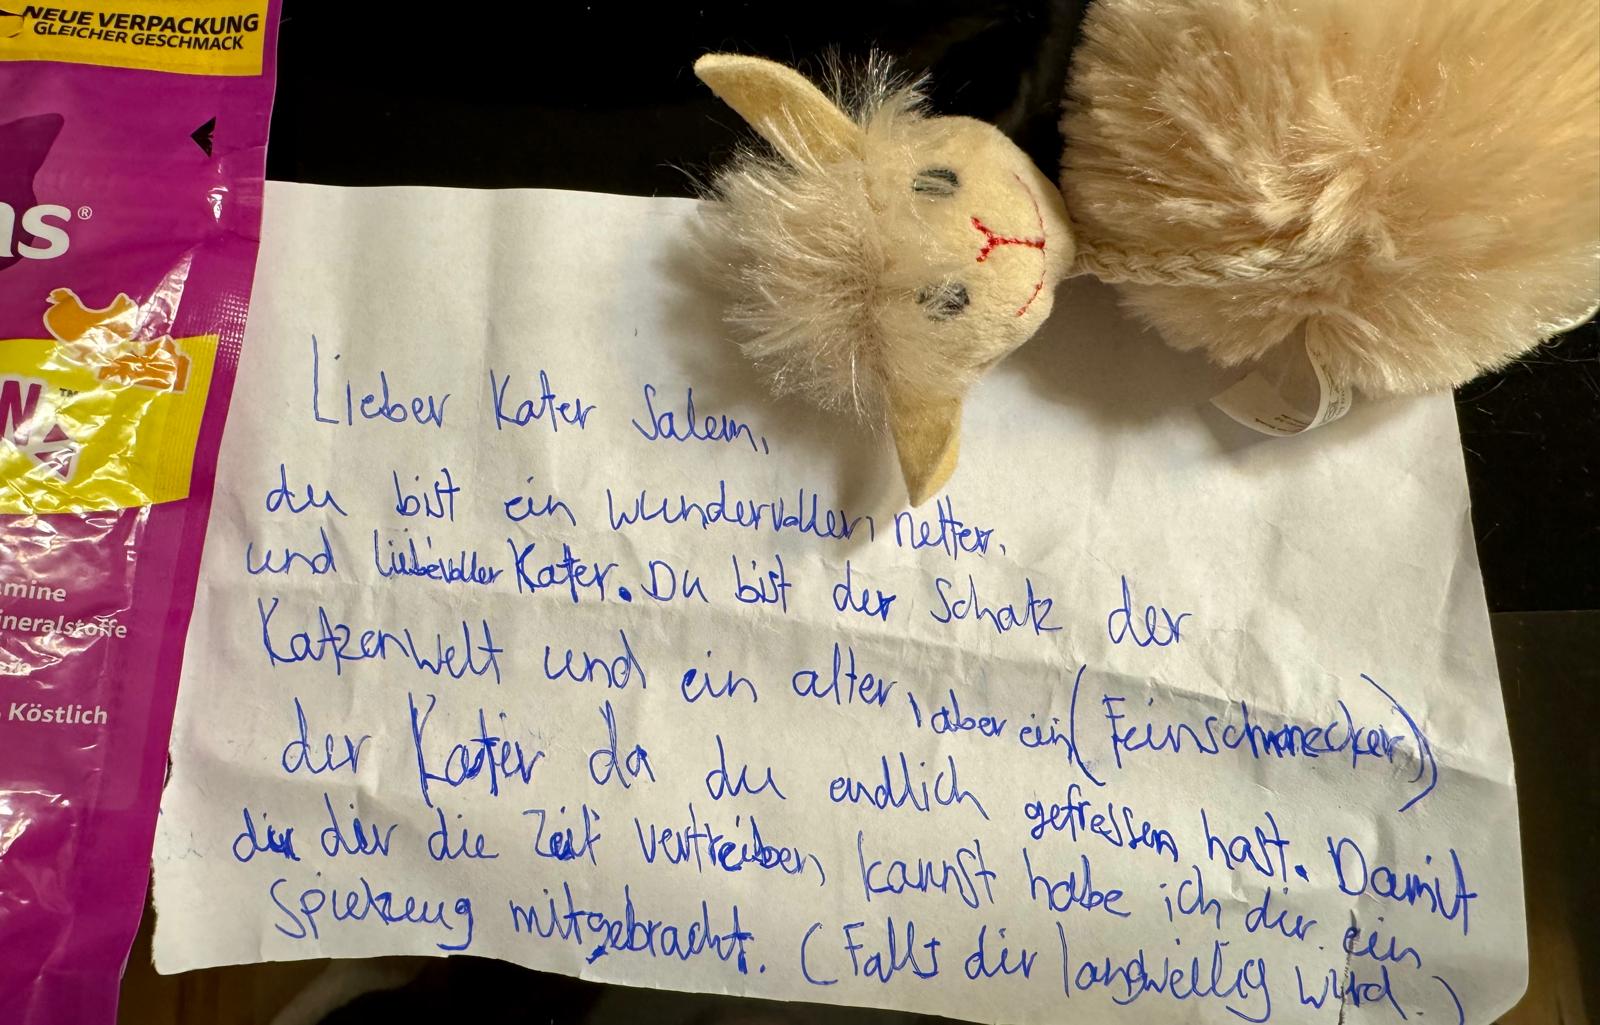 NEUE VERPACKUNG
GLEICHER GESCHMACK
as®
N™
amine
ineralstoffe
Köstlich
Lieber Kater Salem,
du bist ein wundervoller, netter,
und liebevoller Kater. Du bist der Schatz der
Katzenwelt und ein alter, aber ein (Feinschmecker)
der Kater da du endlich gefressen hast. Damit
du dir die Zeit vertreiben kannst habe ich dir ein
Spielzeug mitgebracht. (Falls dir langweilig wird.)